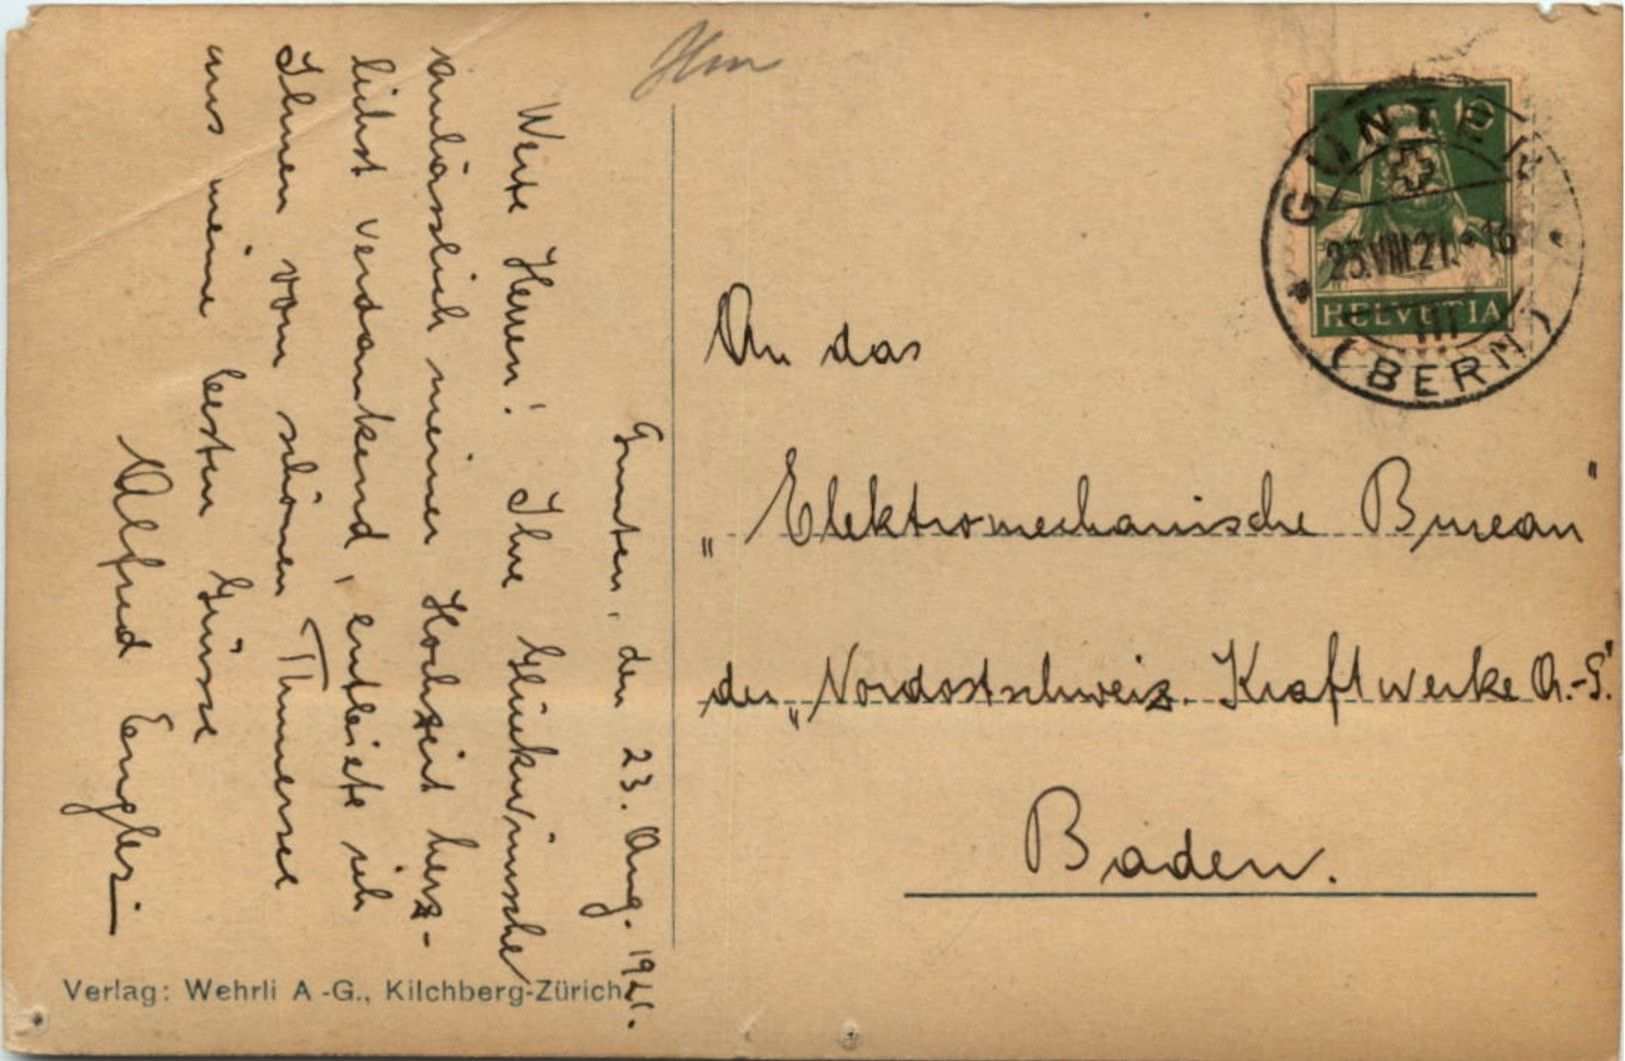 Gunten, den 23. Aug. 1921.
Werte Herren! Ihre Glückwünsche
anlässlich meiner Hochzeit herz-
lichst verdankend, entbiete ich
Ihnen vom schönen Thunersee
aus meine besten Grüsse
Alfred Engler
Verlag: Wehrli A.-G., Kilchberg-Zürich
10
HELVETIA
GUNTEN
23.VIII.21.-16
III
(BERN)
An das
„Elektromechanische Bureau"
der „Nordostschweiz. Kraftwerke A.-G."
Baden.